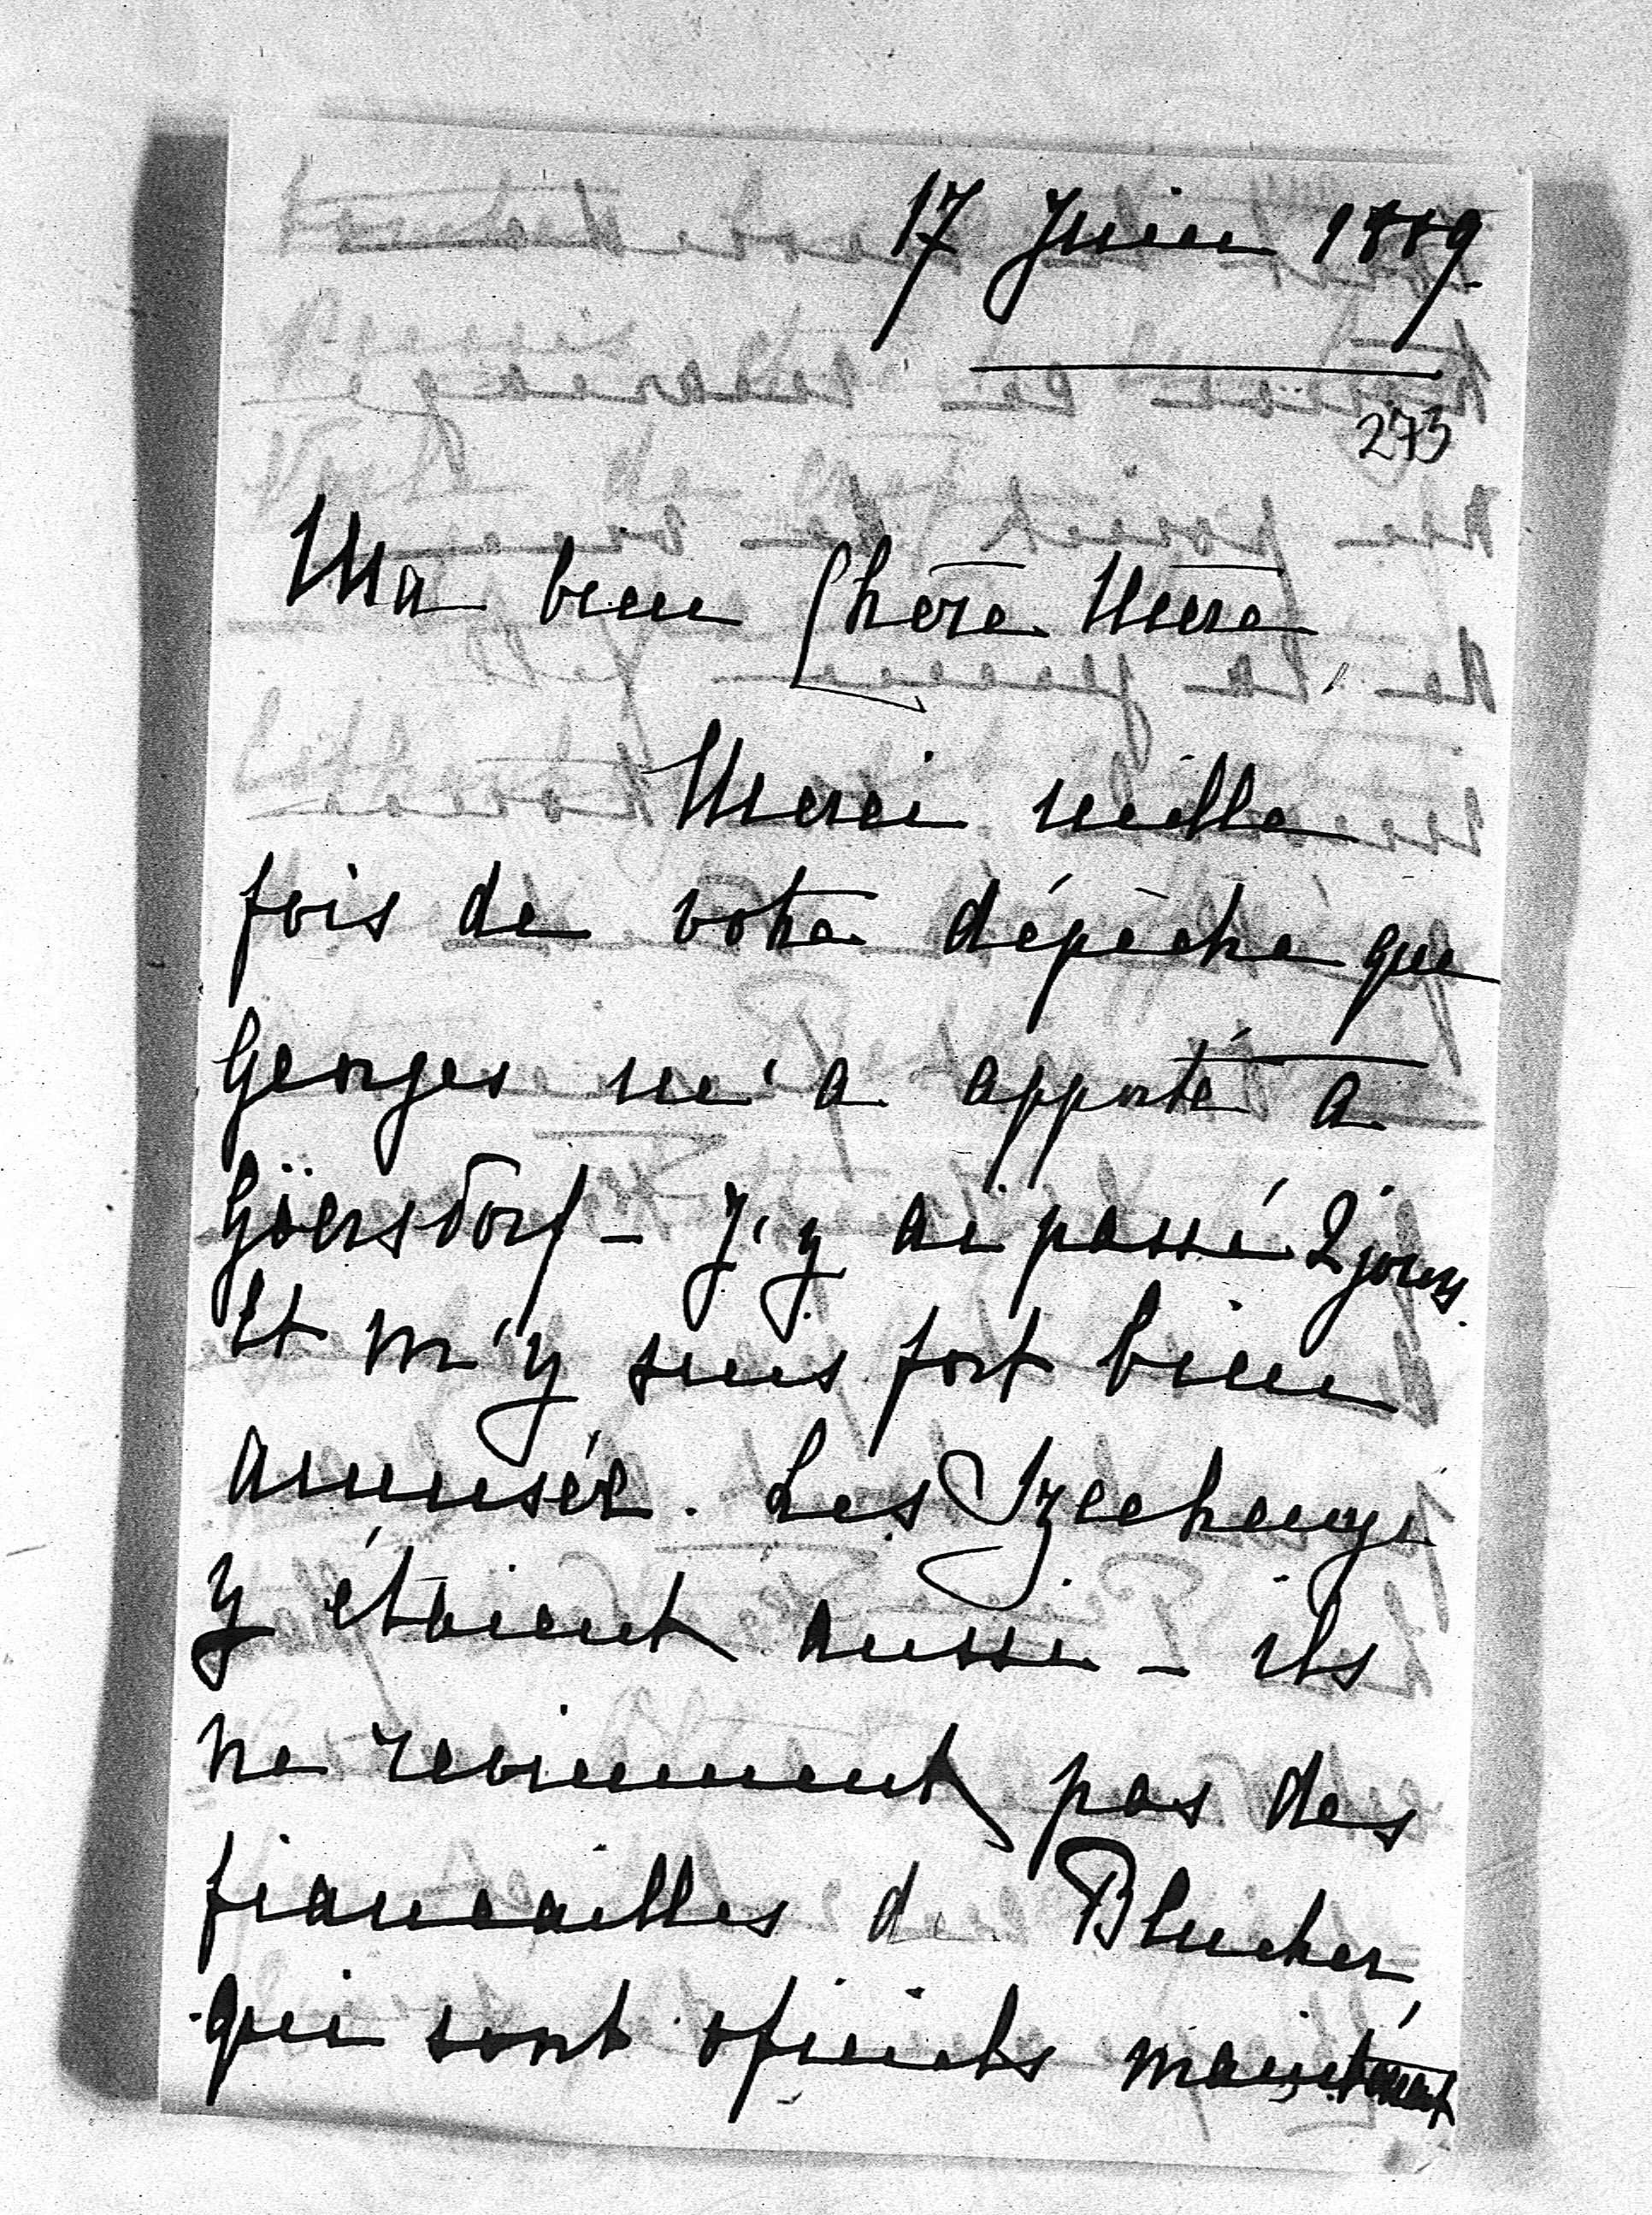 17 Juin 1889
273
Ma bien Chère Mère
Merci mille
fois de votre dépêche que
Georges m'a apporté à
Göersdorf - J'y ai passé 2 jours
et m'y suis fort bien
amusée. Les Szechenyi
y étaient aussi - ils
ne reviennent pas des
fiancailles de Blucher
qui sont oficiels maintenant